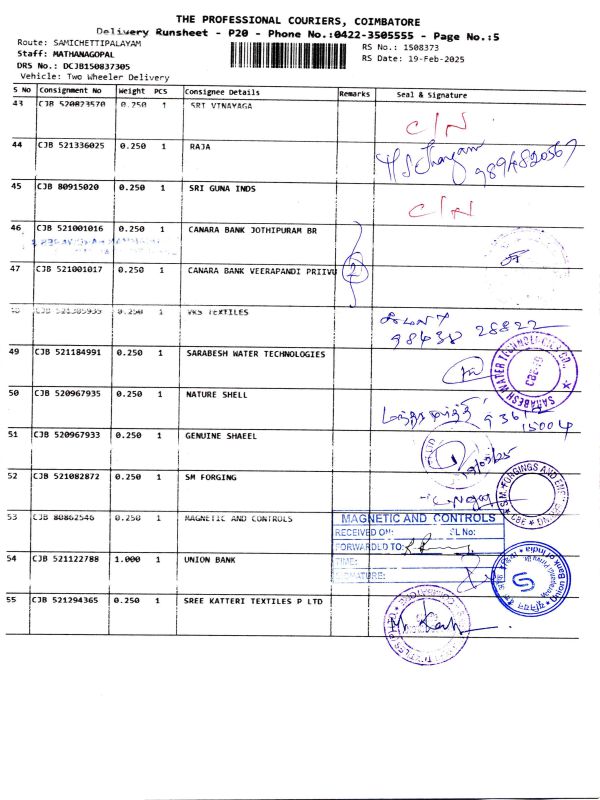 THE PROFESSIONAL COURIERS, COIMBATORE
Delivery Runsheet - P20 - Phone No.:0422-3505555 - Page No.:5
Route: SAMICHETTIPALAYAM
RS No.: 1508373
Staff: MATHANAGOPAL
RS Date: 19-Feb-2025
DRS No.: DCJB150837305
Vehicle: Two Wheeler Delivery
S No Consignment No Weight PCS Consignee Details Remarks Seal & Signature
43 CJB 520823570 0.250 1 SRI VINAYAGA
C/N
44 CJB 521336025 0.250 1 RAJA
9894820567
45 CJB 80915020 0.250 1 SRI GUNA INDS
C/N
46 CJB 521001016 0.250 1 CANARA BANK JOTHIPURAM BR
47 CJB 521001017 0.250 1 CANARA BANK VEERAPANDI PRIIVU 2
48 CJB 521385939 0.250 1 VKS TEXTILES
98438 28822
49 CJB 521184991 0.250 1 SARABESH WATER TECHNOLOGIES
SARABESH WATER TECHNOLOGIES CO.
50 CJB 520967935 0.250 1 NATURE SHELL
93612
15004
51 CJB 520967933 0.250 1 GENUINE SHAEEL
19/02/25
52 CJB 521082872 0.250 1 SM FORGING
S.M. FORGINGS AND
CBE
53 CJB 80862546 0.250 1 MAGNETIC AND CONTROLS
MAGNETIC AND CONTROLS
RECEIVED ON: SL No:
FORWARDED TO:
TIME:
SIGNATURE:
54 CJB 521122788 1.000 1 UNION BANK
Union Bank of India
55 CJB 521294365 0.250 1 SREE KATTERI TEXTILES P LTD